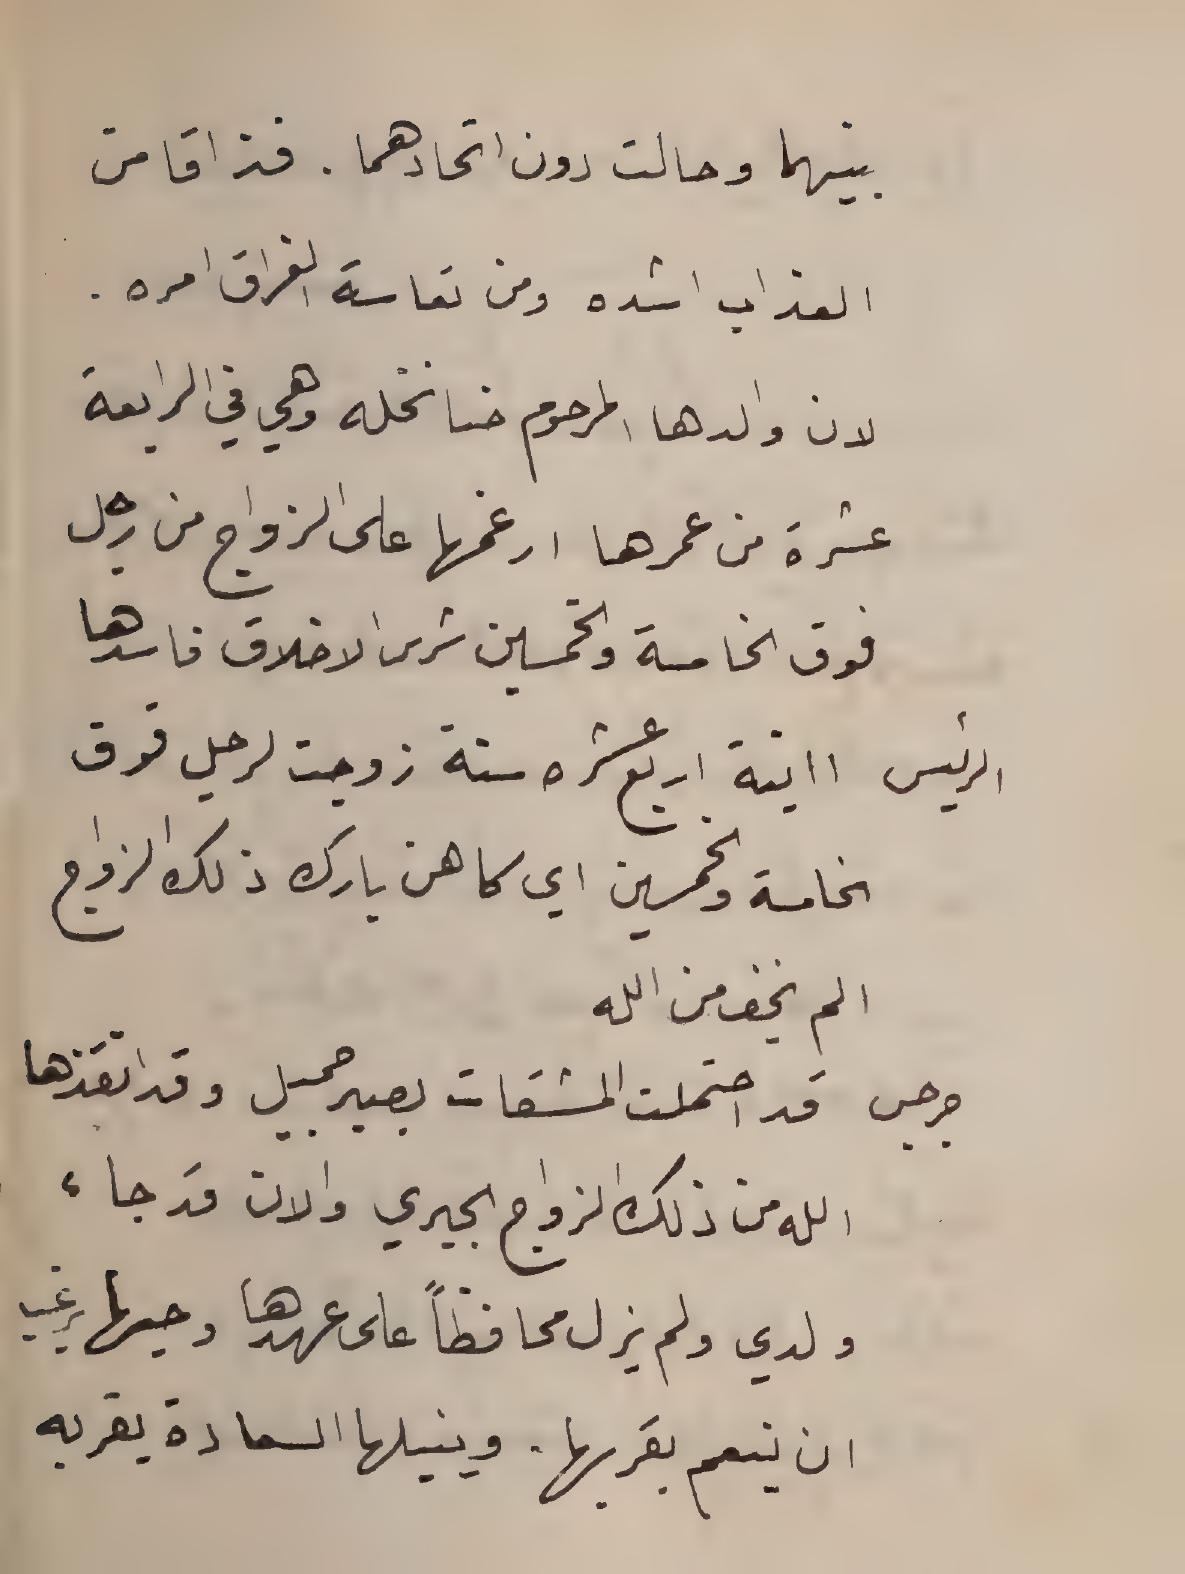 بينهما وحالت دون اتحادهما . فذاقا من
العذاب اشده ومن تعاسة الفراق امره .
لان والدها المرحوم حنا نخله وهي في الرابعة
عشرة من عمرها ارغمها على الزواج من رجل
فوق الخامسة والخمسين شرس الاخلاق فاسدها
الرئيس اابنة اربع عشره سنة زوجت لرجل فوق
الخامسة والخمسين اي كاهن بارك ذلك الزواج
الم يخف من الله
جرجس قد احتملت المشقات بصبر جميل وقد انقذها
الله من ذلك الزواج الجبري والان قد جاء
ولدي ولم يزل محافظاً على عهدها وحبها يرغب
ان ينعم بقربها . وينيلها السعادة بقربه